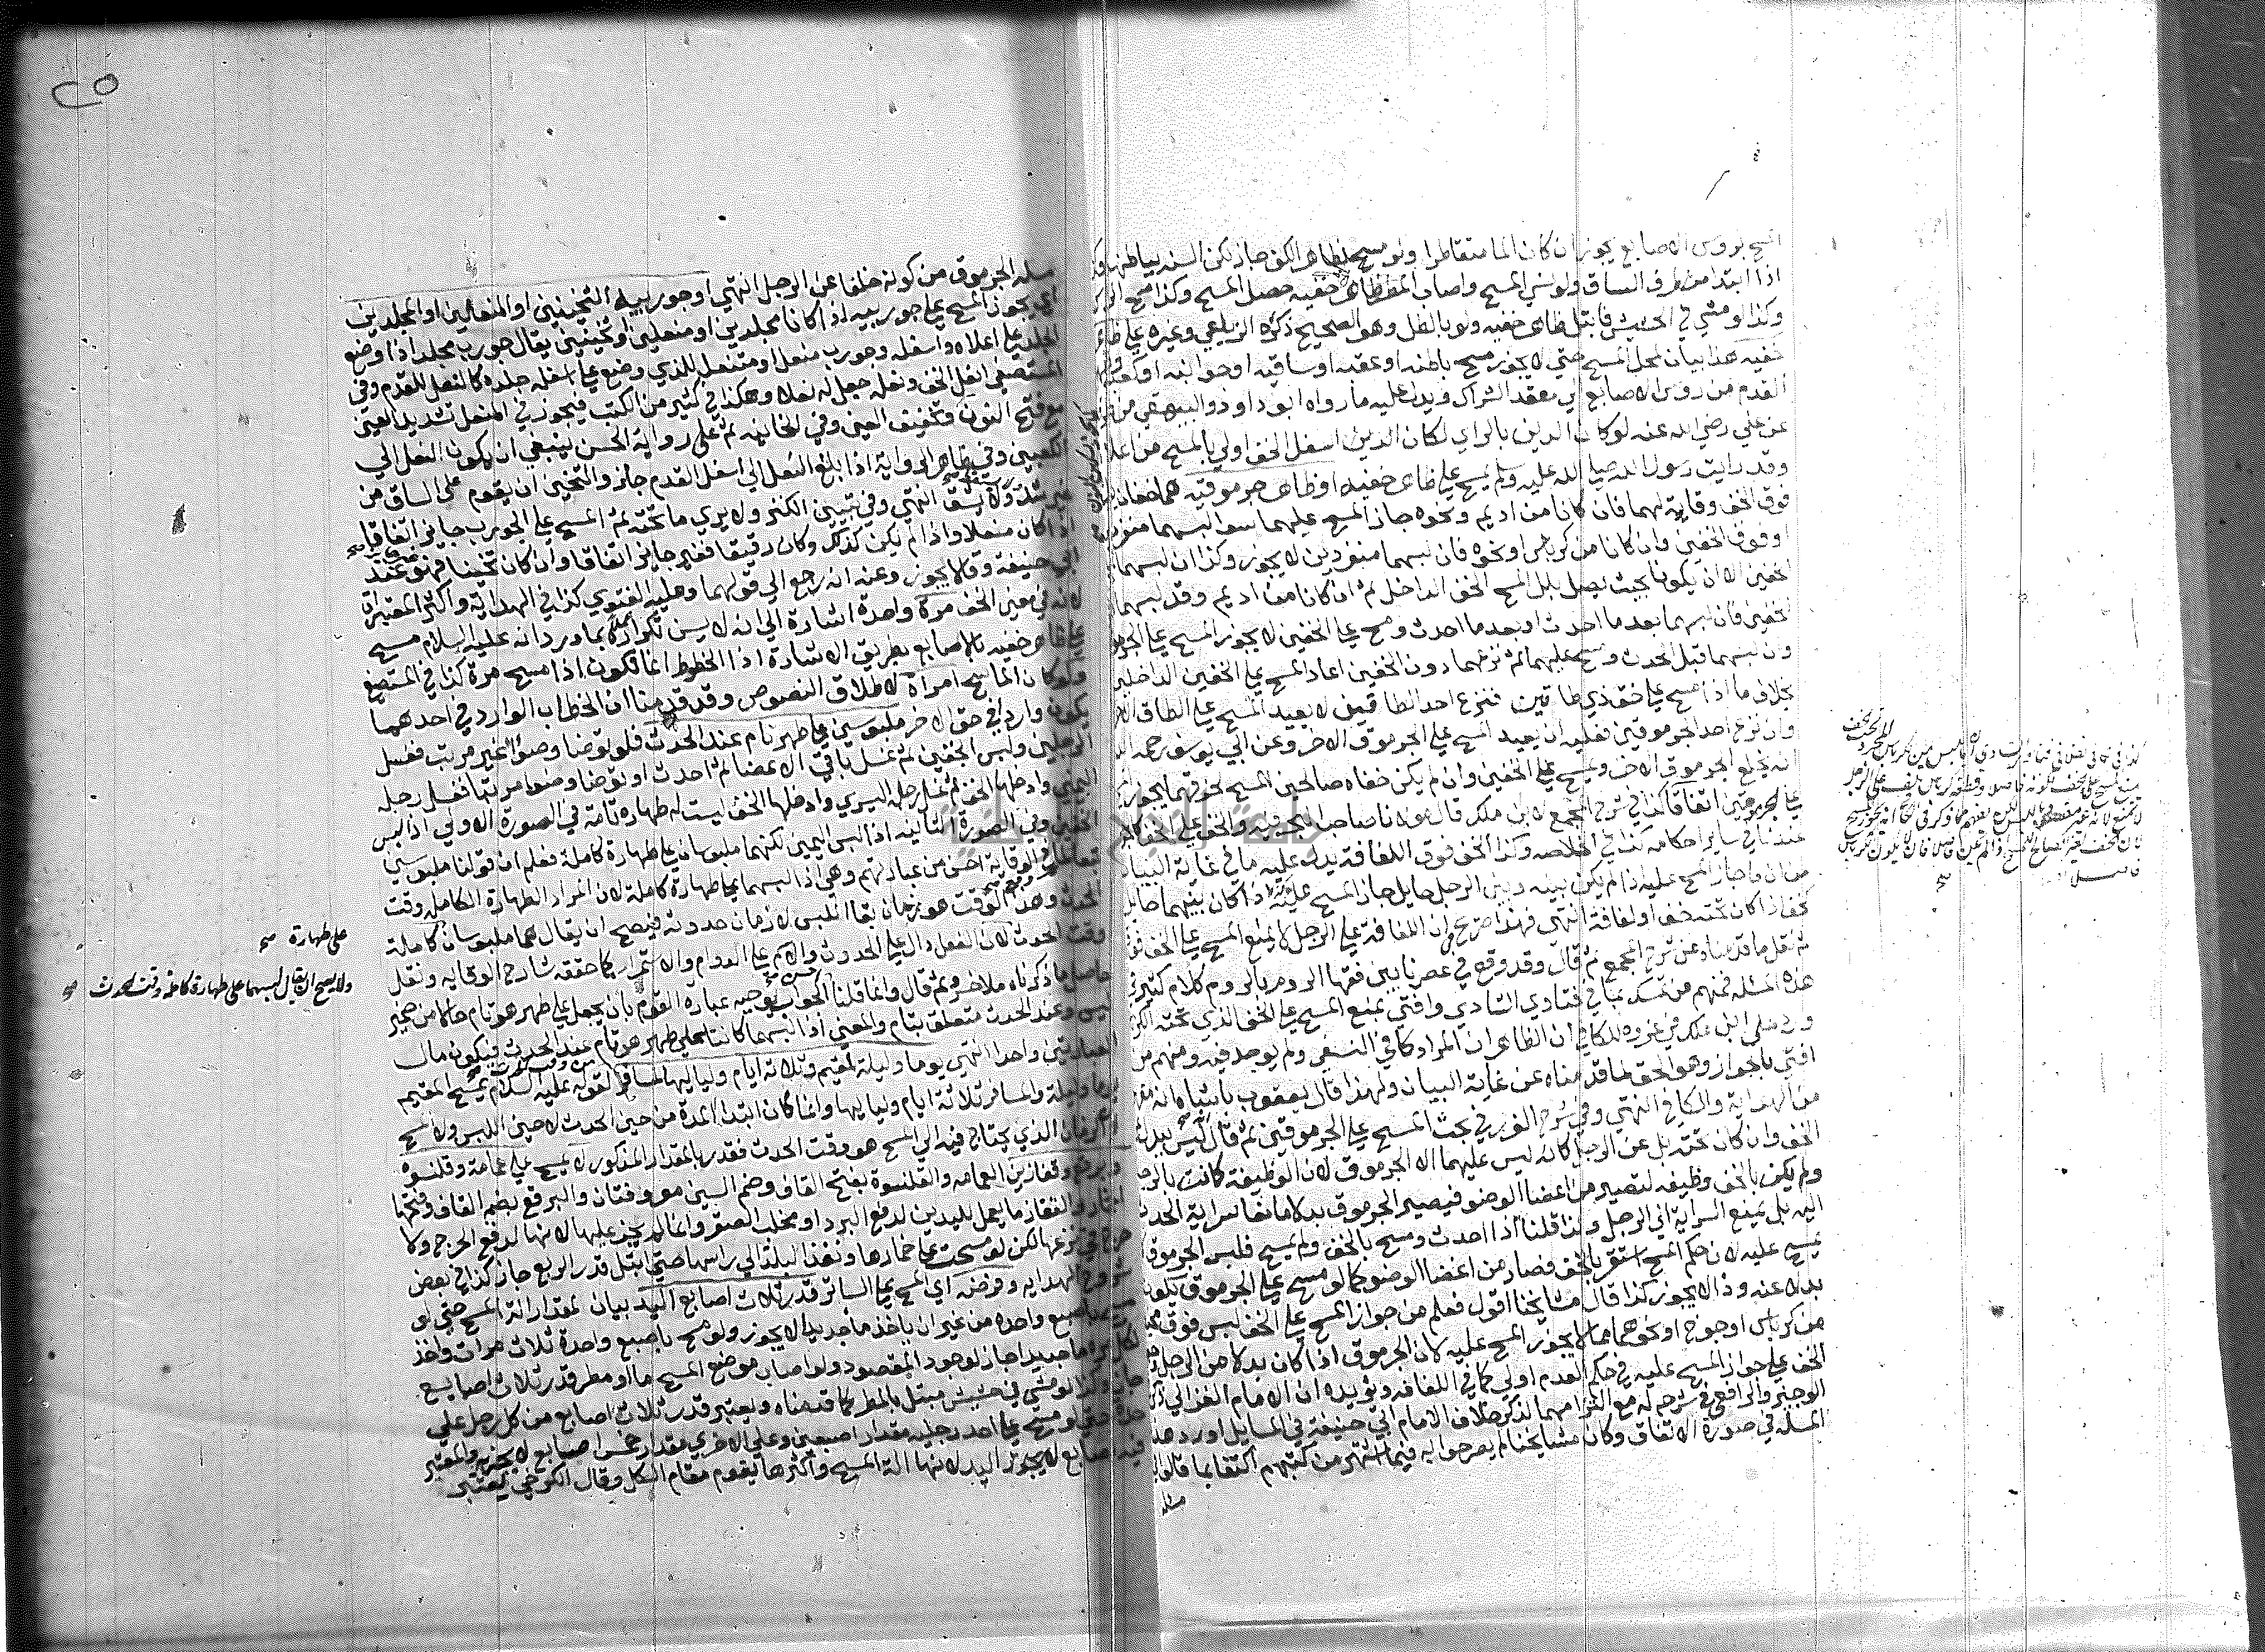 المسح بروس الاصابع يجوز ان كان الما متقاطرا ولو مسح بظاهر الكف جاز لكن السنة بباطنها
اذا ابتدا من طرف الساق ولو نسي المسح واصاب المطر ظاهر خفيه حصل المسح وكذا مسح
وكذا لو مشي في الحشيش فابتل ظاهر خفيه ولو بالطل وهو الصحيح ذكره الزيلعي وغيره علي ظاهر
خفيه هذا بيان لمحل المسح حتي لا يجوز مسح باطنه او عقبه او ساقيه او جوانبه او كعبه
القدم من روس الاصابع الي معقد الشراك ويدل عليه ما رواه ابو داود والبيهقي من
عن علي رضي الله عنه لو كان الدين بالراي لكان اسفل الخف اولي بالمسح من اعلاه
وقد رايت رسول الله صلي الله عليه وسلم يمسح علي ظاهر خفيه او ظاهر جرموقيه هما خفان
فوق الخف وقاية لهما فان كانا من اديم ونحوه جاز المسح عليهما سوا لبسهما منفردين
او فوق الخفين وان كانا من كرباس او نحوه فان لبسهما منفردين لا يجوز وكذا ان لبسهما
الخفين الا ان يكونا بحيث يصل بلل المسح الخف الداخل ثم ان كانا من اديم وقد لبسهما
الخفين فان لبسهما بعد ما احدث او بعد ما احدث ومسح علي الخفين لا يجوز المسح علي
وان لبسهما قبل الحدث ومسح عليهما ثم نزعهما دون الخفين اعاد المسح علي الخفين الداخلين
بخلاف ما اذا مسح علي خف ذي طاقين فنزع احد الطاقين لا يعيد المسح علي الطاق
وان نزع احد الجرموقين فعليه ان يعيد المسح علي الجرموق الاخر وعن ابي يوسف رحمه
انه يخلع الجرموق الاخر ويمسح علي الخفين وان لم يكن خفاه صالحين للمسح لخرقهما يجوز
علي الجرموقين اتفاقا كذا في شرح المجمع لابن ملك قال مولانا صاحب البحر فيه والخف علي الخف
عندنا في ساير احكامه كذا في الخلاصه وكذا الخف فوق اللفافة يدل عليه ما في غاية البيان
من ان ما جاز المسح عليه اذا لم يكن بينه وبين الرجل حايل جاز المسح عليه اذا كان بينهما حايل
كخف اذا كان تحته خف او لفافة انتهي فهذا صريح في ان اللفافة علي الرجل لا يمنع المسح علي الخف
ثم نقل ما قدمناه عن شرح المجمع ثم قال وقد وقع في عصرنا بين فقها الروم بالروم كلام كثير في
هذه المسئله فمنهم من تمسك بما في فتاوي الشاذي وافتي بمنع المسح علي الخف الذي تحته
ورد علي ابن ملك في عزوه للكافي ان الظاهر ان المراد كافي النسفي ولم يوجد فيه ومنهم من
افتي بالجواز وهو الحق لما قدمناه عن غاية البيان ولهذا قال يعقوب باشا انه
من الهداية والكافي انتهي وفي شرح الغرر في بحث المسح علي الجرموقين ثم قال ليس بدل
الخف وان كان تحته بل عن الرجل كانه ليس عليهما الا الجرموق لان الوظيفة كانت بالرجل
ولم يكن بالخف وظيفه لتصير من اعضا الوضو فيصير الجرموق بدلا مانعا سراية الحدث
اليه بل يمنع السراية الي الرجل ولهذا قلنا اذا احدث ومسح بالخف ولم يمسح فلبس الجرموق
يمسح عليه لان حكم المسح استقر بالخف فصار من اعضا الوضو كما لو مسح علي الجرموق يكون
بدلا عنه وذا لا يجوز كذا قال مشايخنا اقول فعلم من جواز المسح علي الخف لبس فوق
من كرباس او جوخ او نحوهما مما لا يجوز المسح عليه لان الجرموق اذا كان بدلا من الرجل
الخف علي جواز المسح عليه في حكم العدم اولي كما في اللفافه ويؤيده ان الامام الغزالي في
الوجيز والرافعي في شرحه له مع التزامهما لذكر خلاف الامام ابي حنيفة في المسايل اوردا
المسله في صورة الاتفاق وكان مشايخنا لم يصرحوا به فيما اشتهر من كتبهم اكتفا بما قالوا
مسئله
علي الخف
٢٥
مسئلة الجرموق من كونه خلفا عن الرجل انتهي او جوربيه الثخينين او المنعلين او المجلدين
اي يجوز المسح علي جوربيه اذا كانا مجلدين او منعلين او ثخينين يقال جورب مجلد اذا وضع
الجلد علي اعلاه واسفله وجورب منعل او متنعل للذي وضع علي اسفله جلدة كالنعل للقدم وفي
المستصفي انعل الخف ونعله جعل له نعلا وهكذا في كثير من الكتب فيجوز في المنعل تشديد العين
مع فتح النون وتخفيف العين وفي الخانيه ثم علي رواية الحسن ينبغي ان يكون النعل الي
الكعبين وفي ظاهر الرواية اذا بلغ النعل الي اسفل القدم جاز والثخين ان يقوم علي الساق من
غير شد ولا يسقط انتهي وفي تبيين الكنز ولا يري ما تحته ثم المسح علي الجورب جايز اتفاقا
اذا كان منعلا واذا لم يكن كذلك وكان رقيقا فغير جايز اتفاقا وان كان ثخينا فهو عند
ابي حنيفة وقالا يجوز وعنه انه رجع الي قولهما وعليه الفتوي كذا في الهداية واكثر المعتبرات
لانه في معني الخف مرة واحدة اشارة الي انه لا يسن تكراره بما ورد انه عليه السلام مسح
علي ظاهر خفيه بالاصابع بطريق الاشارة اذا الخطوط انما تكون اذا مسح مرة كذا في المستصفي
ولو كان الماسح امراة لاطلاق النصوص وقد قدمنا ان الخطاب الوارد في احدهما
يكون واردا في حق الاخر ملبوسين علي طهر تام عند الحدث فلو توضا وضوا غير مرتب فغسل
الرجلين ولبس الخفين ثم غسل باقي الاعضا ثم احدث او توضا وضوا مرتبا فغسل رجله
اليمني وادخلها الخف ثم غسل رجله اليسري وادخلها الخف ليست له طهارة تامة في الصورة الاولي اذا لبس
الخفين وفي الصورة الثانيه اذا لبس اليمين لكنهما ملبوسان علي طهارة كاملة فعلم ان قولنا ملبوسين
الوقاية احسن من عبارتهم وهي اذا لبسهما علي طهارة كاملة لان المراد الطهارة الكاملة وقت
الحدث وهذا الوقت هو زمان بقا اللبس لا زمان حدوثه فيصح ان يقال هما ملبوسان كاملة
وقت الحدث لان الفعل دال علي الحدوث والاسم علي الدوام والاستمرار كما حققه شارح الوقايه ونقل
حاصل ما ذكرناه ملا خسرو ثم قال وانما قلنا الجواب توجيه عبارة القوم بان يجعل علي طهر هو تام حالا من ضمير
لبس وعند الحدث متعلق بتام والمعني اذا لبسهما كائنا علي طهر هو تام عند الحدث فيكون مال
العبارتين واحدا انتهي يوما وليلة لمقيم وثلاثة ايام ولياليها لمسافر لقوله عليه السلام يمسح المقيم
يوما وليلة والمسافر ثلاثة ايام ولياليها وانما كان ابتدا المدة من حين الحدث لا حين اللبس ولا المسح
الزمان الذي يحتاج فيه الي المسح هو وقت الحدث فقدر بالمقدار المذكور لا يمسح علي عمامة وقلنسوة
وبرقع وقفازين العمامه والقلنسوة بفتح القاف وضم السين معروفتان والبرقع بضم القاف وفتحها
الخمار والقفاز ما يعمل لليدين لدفع البرد او مخلب الصقر وانما لم يجز عليها لانها لدفع الحرج ولا
حرج في نزعها لكن لو مسحت علي خمارها ونفذ البلة الي راسها حتي ابتل قدر الربع جاز كذا في بعض
شروح الهدايه وفرضه اي المسح علي الساتر قدر ثلاث اصابع اليد بيان لمقدار الة المسح حتي لو
مسح باصبع واحده من غير ان ياخذ ما جديدا لا يجوز ولو مسح باصبع واحدة ثلاث مرات واخذ
لكل مره ما جديدا جاز لوجود المقصود ولو اصاب موضع المسح ما او مطر قدر ثلاث اصابع
جاز وكذا لو مشي في حشيش مبتل بالمطر كما قدمناه ويعتبر قدر ثلاث اصابع من كل رجل علي
حدة حتي لو مسح علي احد رجليه مقدار اصبعين وعلي الاخري مقدار خمس اصابع لا يجزيه والمعتبر
فيه اصابع اليد لانها الة المسح واكثرها يقوم مقام الكل وقال الكرخي يعتبر
علي طهارة صح
ولا يصح ان يقال لبسهما علي طهارة كاملة وقت الحدث صح